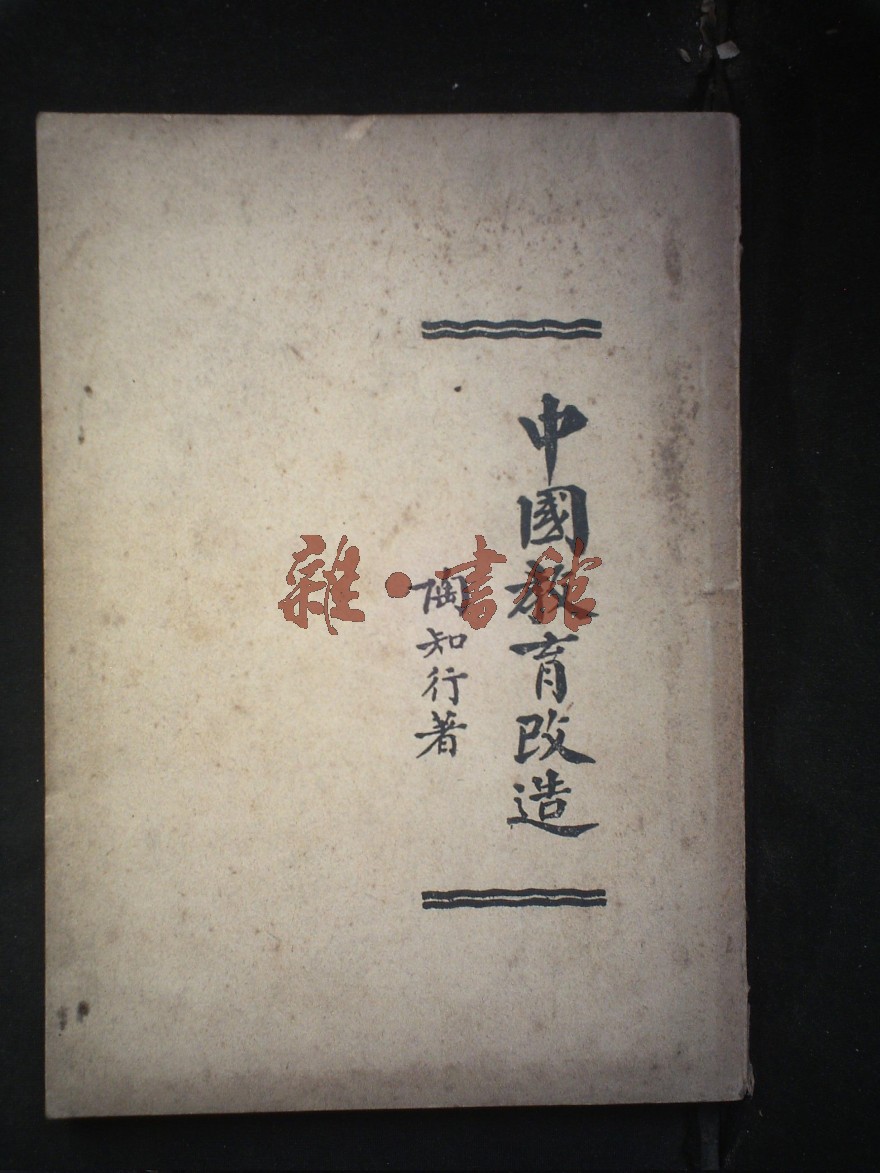 中國教育改造
陶知行著
雜·書館